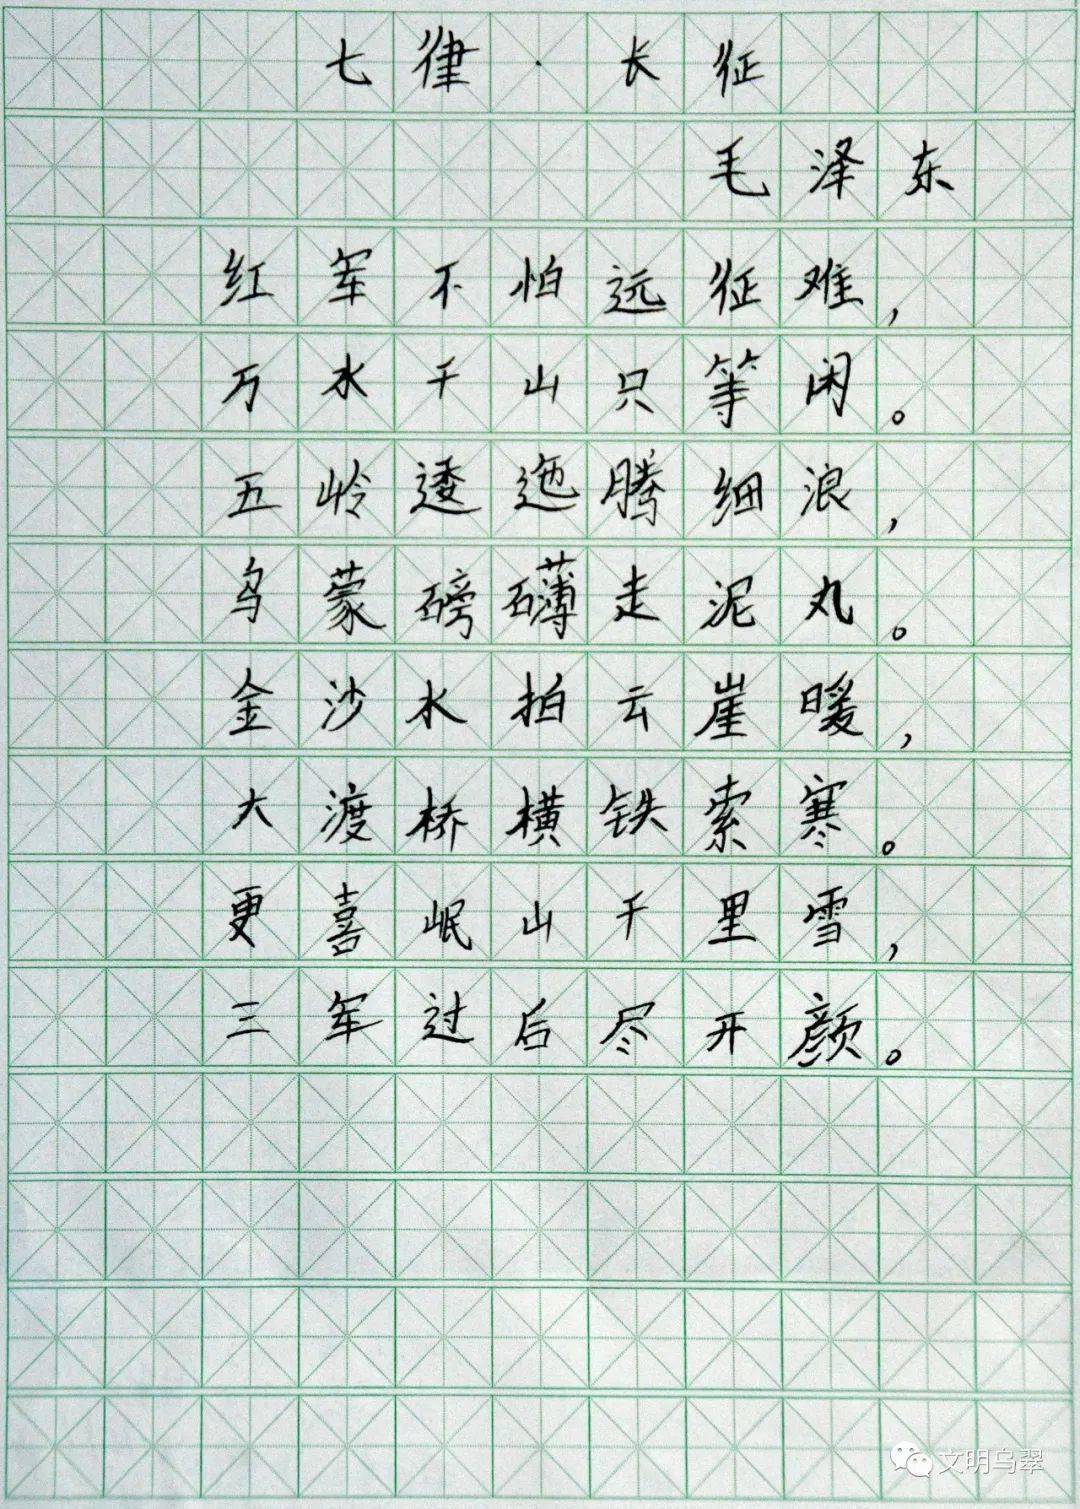 七律·长征
毛泽东
红军不怕远征难，
万水千山只等闲。
五岭逶迤腾细浪，
乌蒙磅礴走泥丸。
金沙水拍云崖暖，
大渡桥横铁索寒。
更喜岷山千里雪，
三军过后尽开颜。
文明乌翠